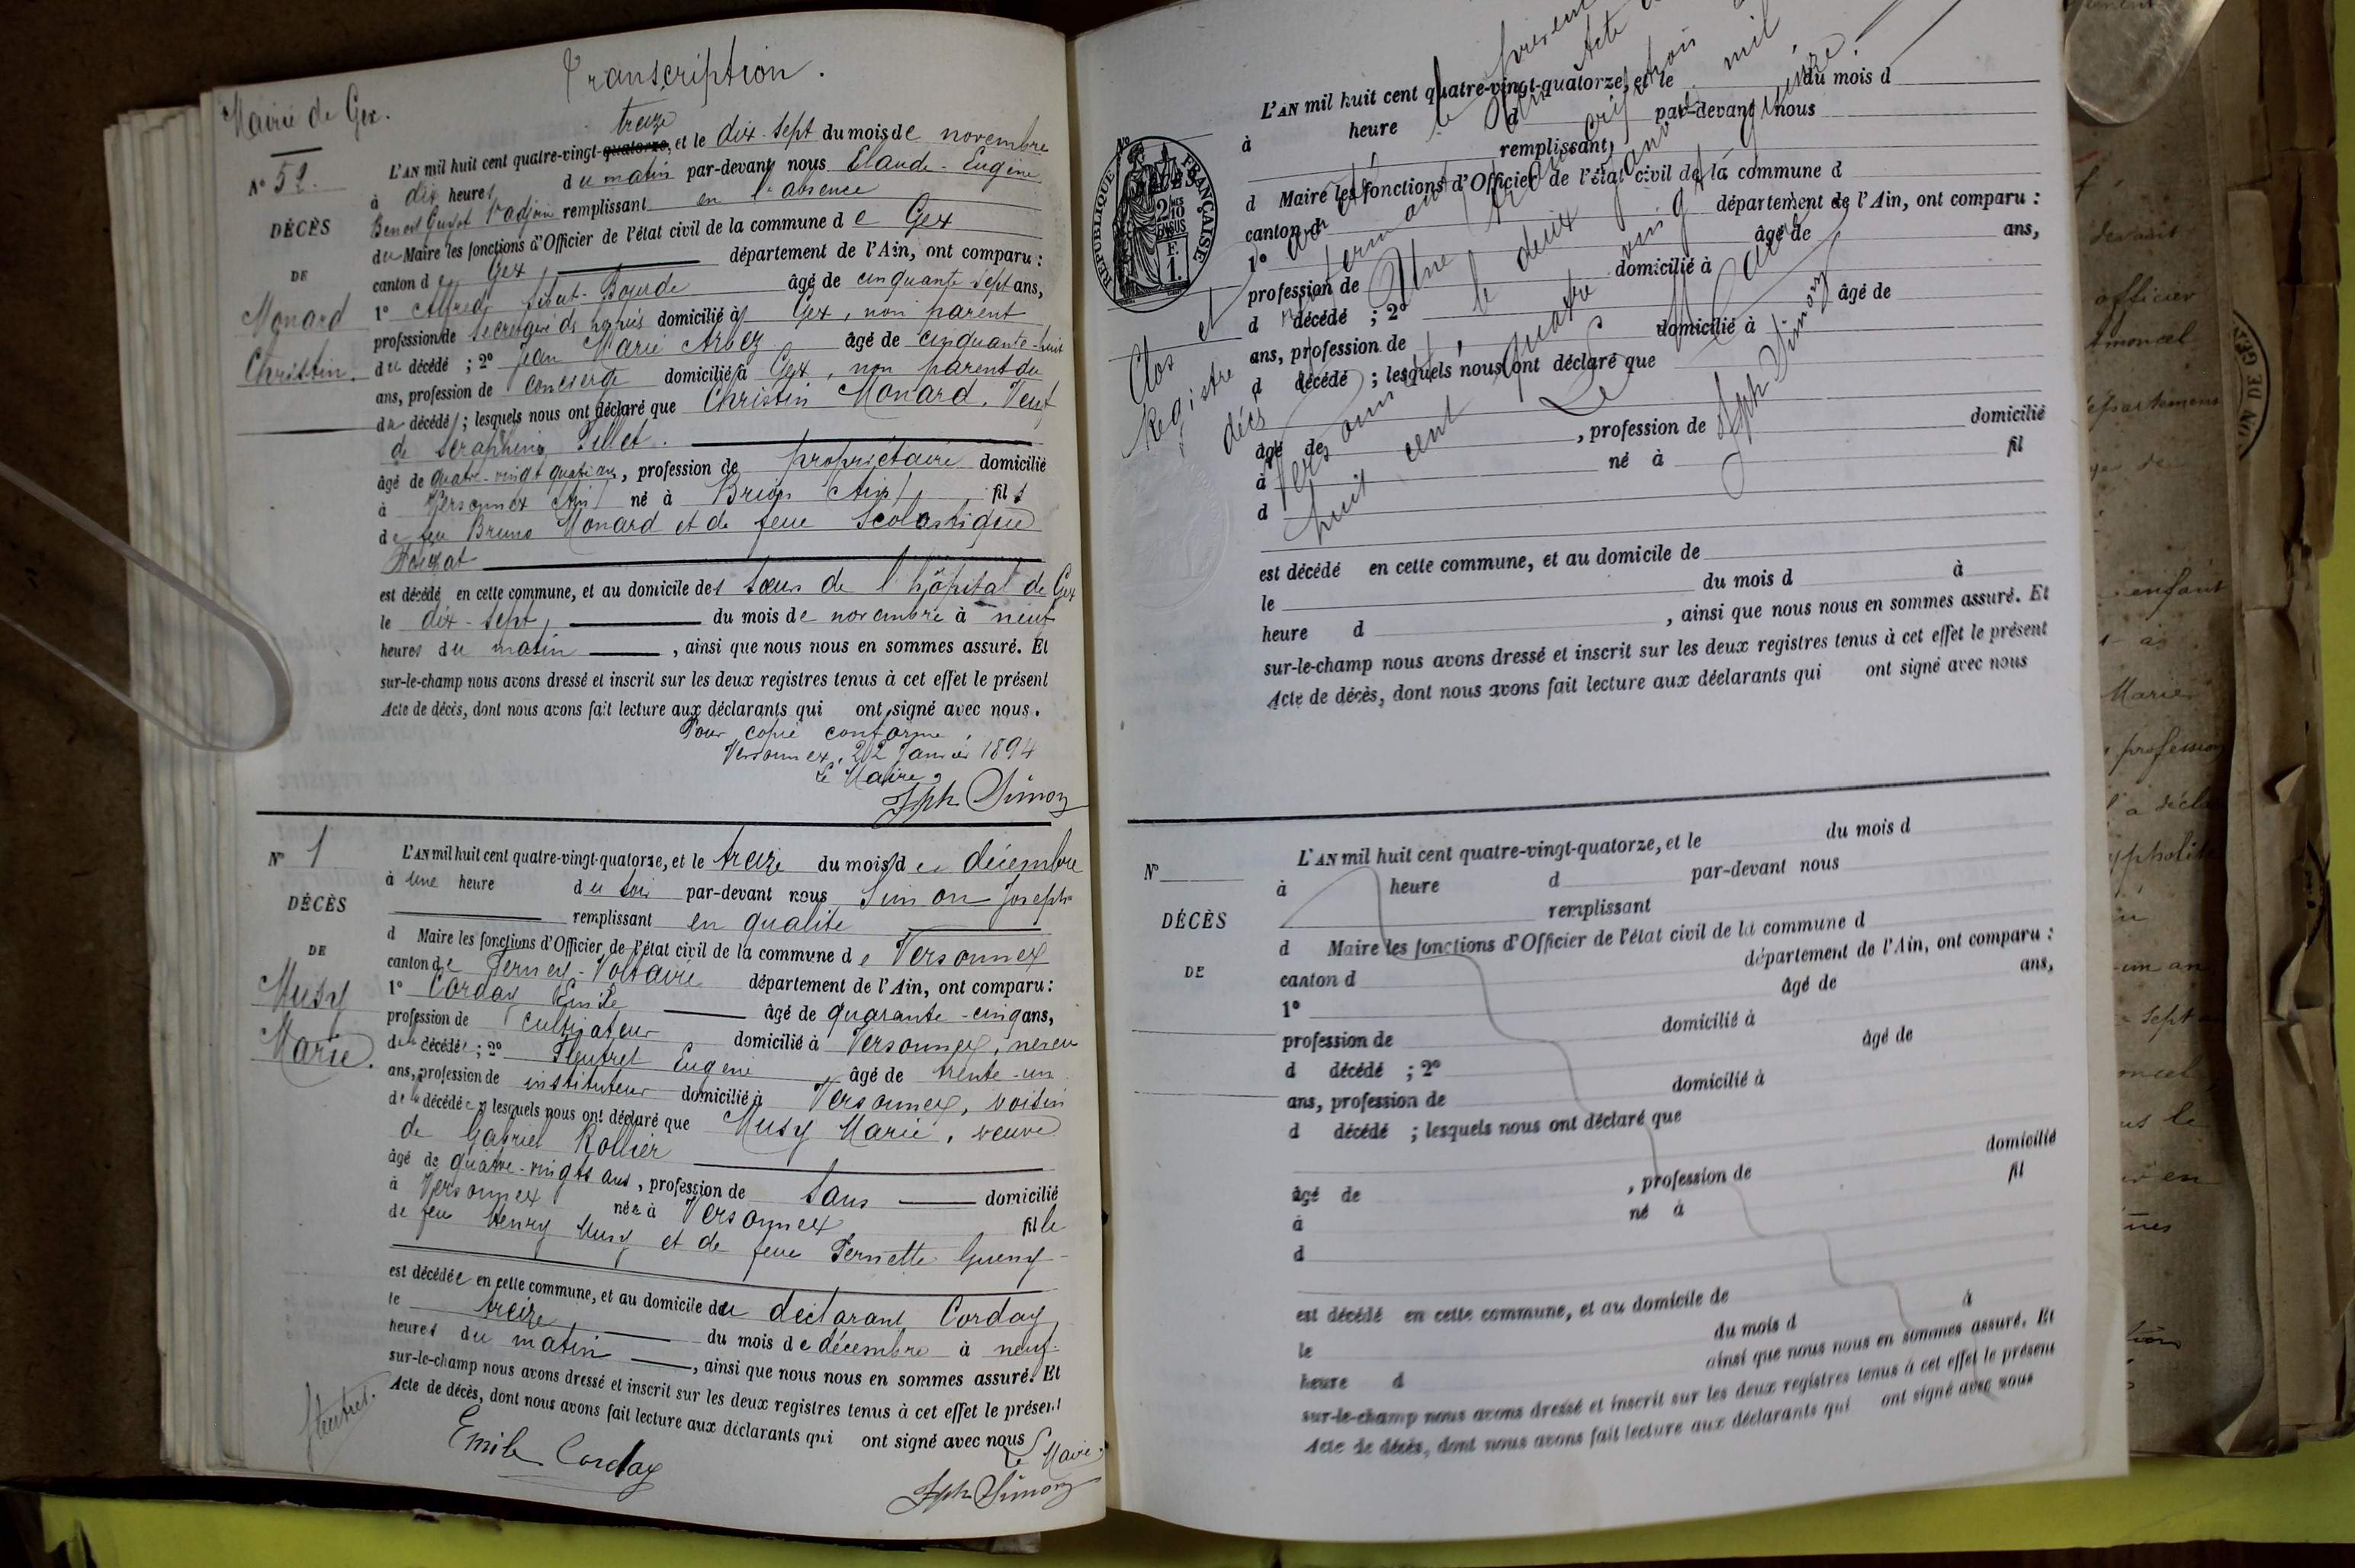 Transcription.
Mairie de Gex.
N° 52.
DÉCÈS
DE
Monard
Christin.
treize
L'AN mil huit cent quatre-vingt-quatorze, et le dix-sept du mois de novembre
à dix heures du matin par-devant nous Claude-Eugène
Benoit Guyot 1er adjoin remplissant en l'absence
du Maire les fonctions d'Officier de l'état civil de la commune d e Gex
canton de Gex, département de l'Ain, ont comparu :
1° Alfred âgé de cinquante sept ans,
profession de domicilié à Gex, non parent
du décédé ; 2° Jean Marie Arbez âgé de cinquante-huit
ans, profession de concierge domicilié à Gex, non parent du
du décédé ; lesquels nous ont déclaré que Christin Monard, Veuf
de Séraphine Pillet.
âgé de quatre-vingt quatre ans, profession de propriétaire domicilié
à Versonnex (Ain) né à Brion (Ain) fils
de feu Bruno Monard et de feue Scolastique
est décédé en cette commune, et au domicile des Sœurs de l'hôpital de Gex
le dix-sept, du mois de novembre à neuf
heures du matin , ainsi que nous nous en sommes assuré. Et
sur-le-champ nous avons dressé et inscrit sur les deux registres tenus à cet effet le présent
Acte de décès, dont nous avons fait lecture aux déclarants qui ont signé avec nous.
Pour copie conforme
Versonnex, 22 Janvier 1894
Le Maire,
Jph Simon
N° 1
DÉCÈS
DE
Musy
Marie.
L'AN mil huit cent quatre-vingt-quatorze, et le treize du mois de décembre
à une heure du soir par-devant nous Simon Joseph
remplissant en qualité
d Maire les fonctions d'Officier de l'état civil de la commune d e Versonnex
canton de Ferney-Voltaire département de l'Ain, ont comparu :
1° Corday Emile âgé de quarante-cinq ans,
profession de cultivateur domicilié à Versonnex, neveu
de la décédée ; 2° Fleutret Eugène âgé de trente-un
ans, profession de instituteur domicilié à Versonnex, voisin
de la décédée ; lesquels nous ont déclaré que Musy Marie, veuve
de Gabriel Rollier
âgé de quatre-vingts ans, profession de sans domicilié
à Versonnex née à Versonnex fille
de feu Henry Musy et de feue Pernette
est décédée en cette commune, et au domicile du déclarant Corday
le treize, du mois de décembre à neuf
heures du matin , ainsi que nous nous en sommes assuré. Et
sur-le-champ nous avons dressé et inscrit sur les deux registres tenus à cet effet le présent
Acte de décès, dont nous avons fait lecture aux déclarants qui ont signé avec nous
Fleutret.
Emile Corday
Le Maire,
Jph Simon
RÉPUBLIQUE FRANÇAISE
Clos et
Registre
décès
Versonnex, le deux janvier mil
huit cent quatre vingt quinze.
Le Maire
Jph Simon
L'AN mil huit cent quatre-vingt-quatorze, et le du mois d
à heure d par-devant nous
remplissant
d Maire les fonctions d'Officier de l'état civil de la commune d
canton d département de l'Ain, ont comparu :
1° âgé de ans,
profession de domicilié à
d décédé ; 2° âgé de
ans, profession de domicilié à
d décédé ; lesquels nous ont déclaré que
âgé de , profession de domicilié
à né à fil
d
est décédé en cette commune, et au domicile de
le du mois d à
heure d , ainsi que nous nous en sommes assuré. Et
sur-le-champ nous avons dressé et inscrit sur les deux registres tenus à cet effet le présent
Acte de décès, dont nous avons fait lecture aux déclarants qui ont signé avec nous
N°
DÉCÈS
DE
L'AN mil huit cent quatre-vingt-quatorze, et le du mois d
à heure d par-devant nous
remplissant
d Maire les fonctions d'Officier de l'état civil de la commune d
canton d département de l'Ain, ont comparu :
1° âgé de ans,
profession de domicilié à
d décédé ; 2° âgé de
ans, profession de domicilié à
d décédé ; lesquels nous ont déclaré que
âgé de , profession de domicilié
à né à fil
d
est décédé en cette commune, et au domicile de
le du mois d à
heure d ainsi que nous nous en sommes assuré. Et
sur-le-champ nous avons dressé et inscrit sur les deux registres tenus à cet effet le présent
Acte de décès, dont nous avons fait lecture aux déclarants qui ont signé avec nous